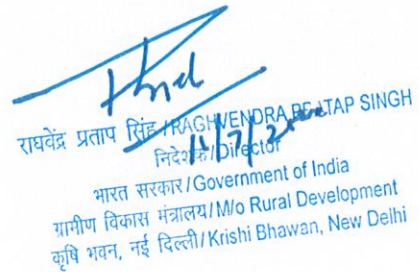 राघवेंद्र प्रताप सिंह / RAGHVENDRA PRATAP SINGH
निदेशक / Director
भारत सरकार / Government of India
ग्रामीण विकास मंत्रालय / M/o Rural Development
कृषि भवन, नई दिल्ली / Krishi Bhawan, New Delhi